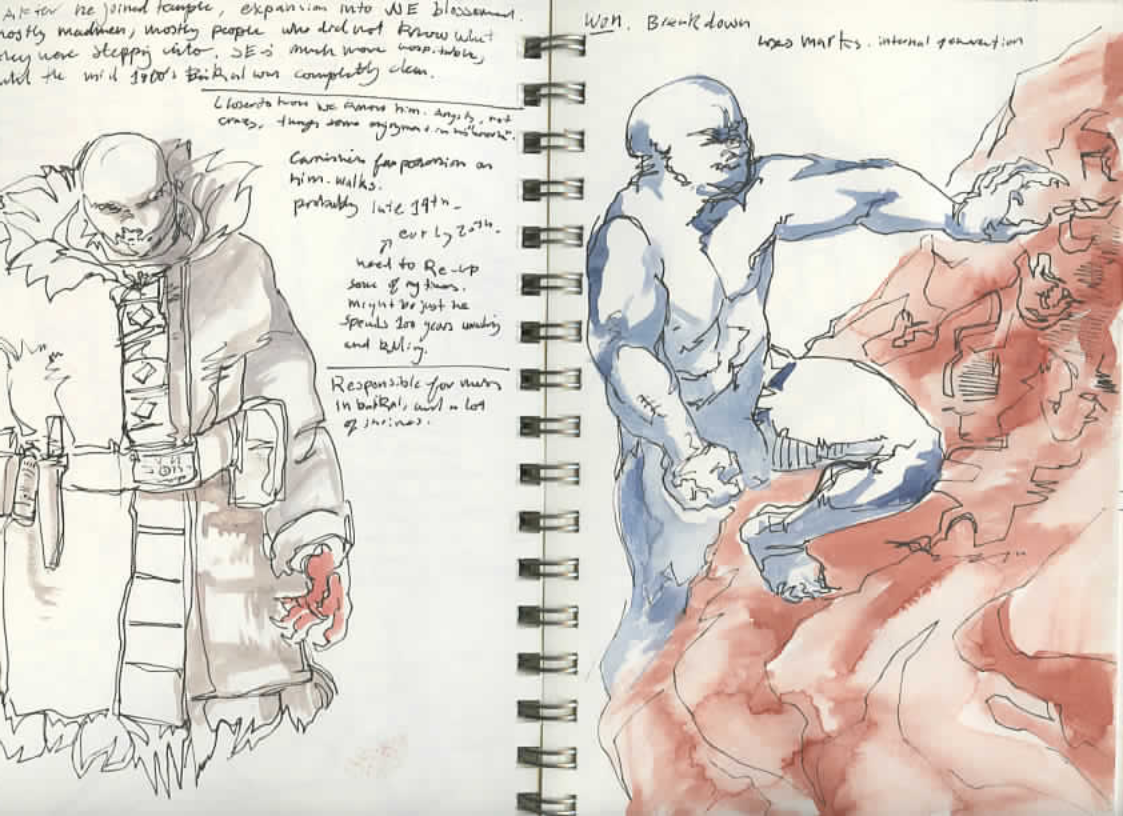 After he joined temple, expansion into NE blossomed.
mostly madmen, mostly people who did not know what
they were stepping into. SE is much more hospitable,
until the mid 1900's was completely clean.
Closer to how we know him. angsty, not
crazy, finds some enjoyment in his "work".
for possession on
him. walks.
probably late 19th -
↗ early 20th.
need to Re-up
some of my times.
might be just he
spends 100 years wandering
and killing.
Responsible for much
in and a lot
of shrines.
Won. Breakdown
loses martes. internal